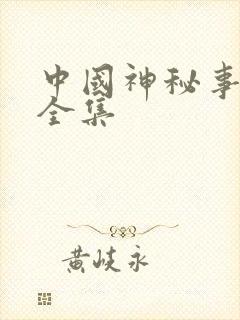 中國神秘事
全集
黄岐永